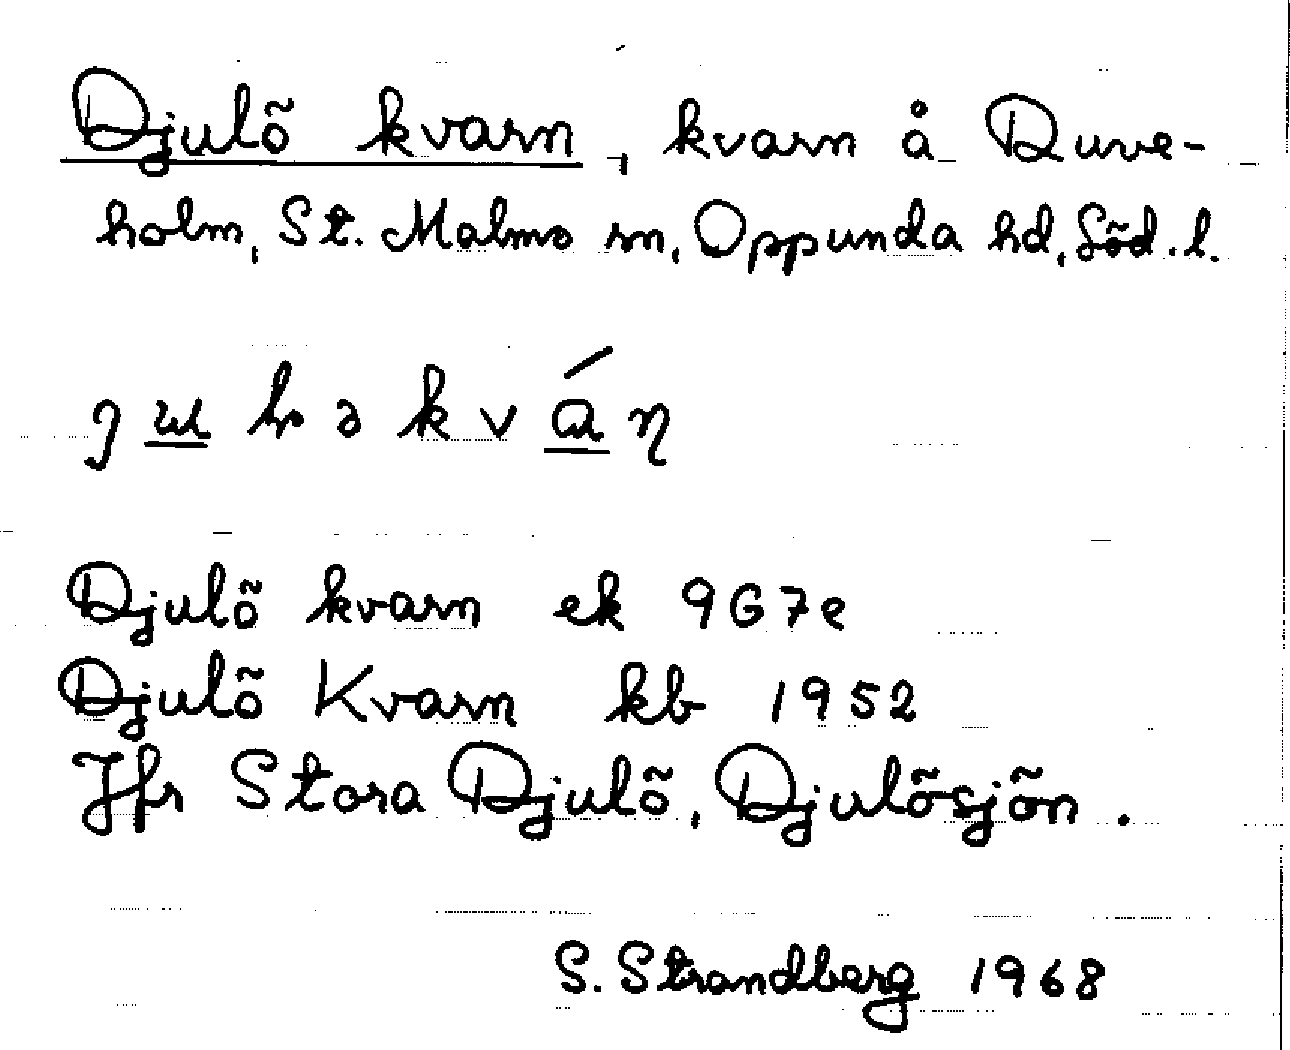 Djulö kvarn, kvarn å Duve-
holm, St. Malms sn, Oppunda hd, Söd. l.
Djulö kvarn ek 9G7e
Djulö Kvarn kb 1952
Jfr Stora Djulö, Djulösjön.
S. Strandberg 1968